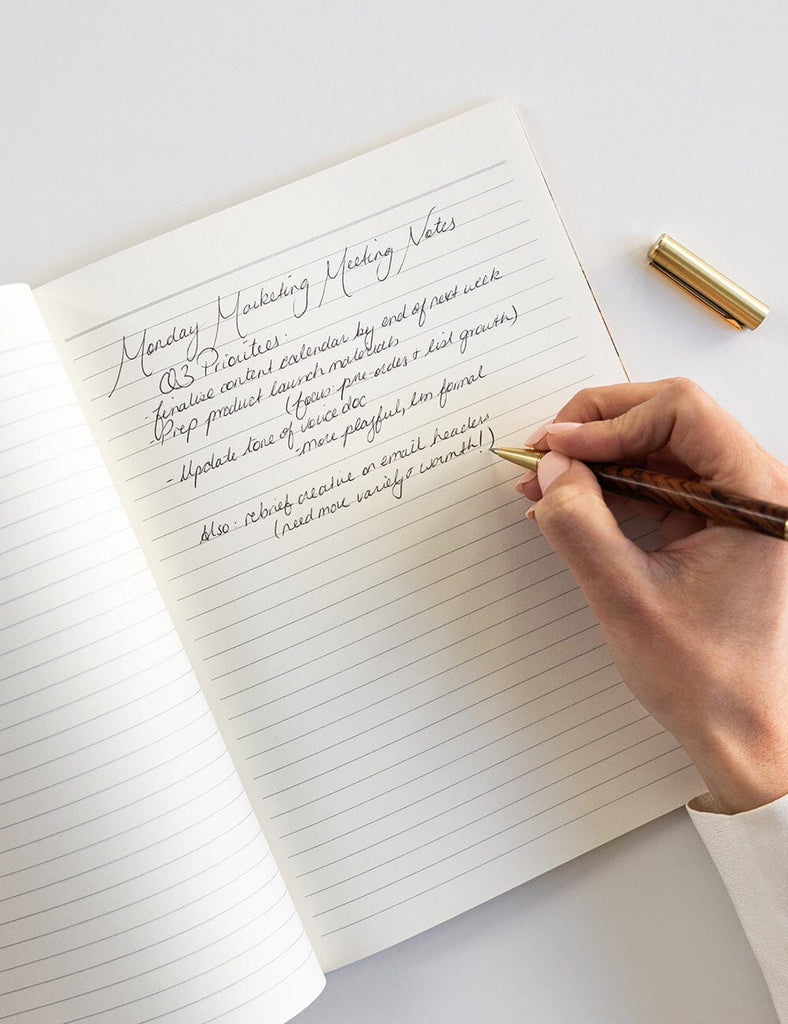 Monday Marketing Meeting Notes
Q3 Priorities:
- finalise content calendar by end of next week
- Prep product launch materials
(focus: pre-orders + list growth)
- Update tone of voice doc
- more playful, less formal
Also: rebrief creative on email headers
(need more variety + warmth!)